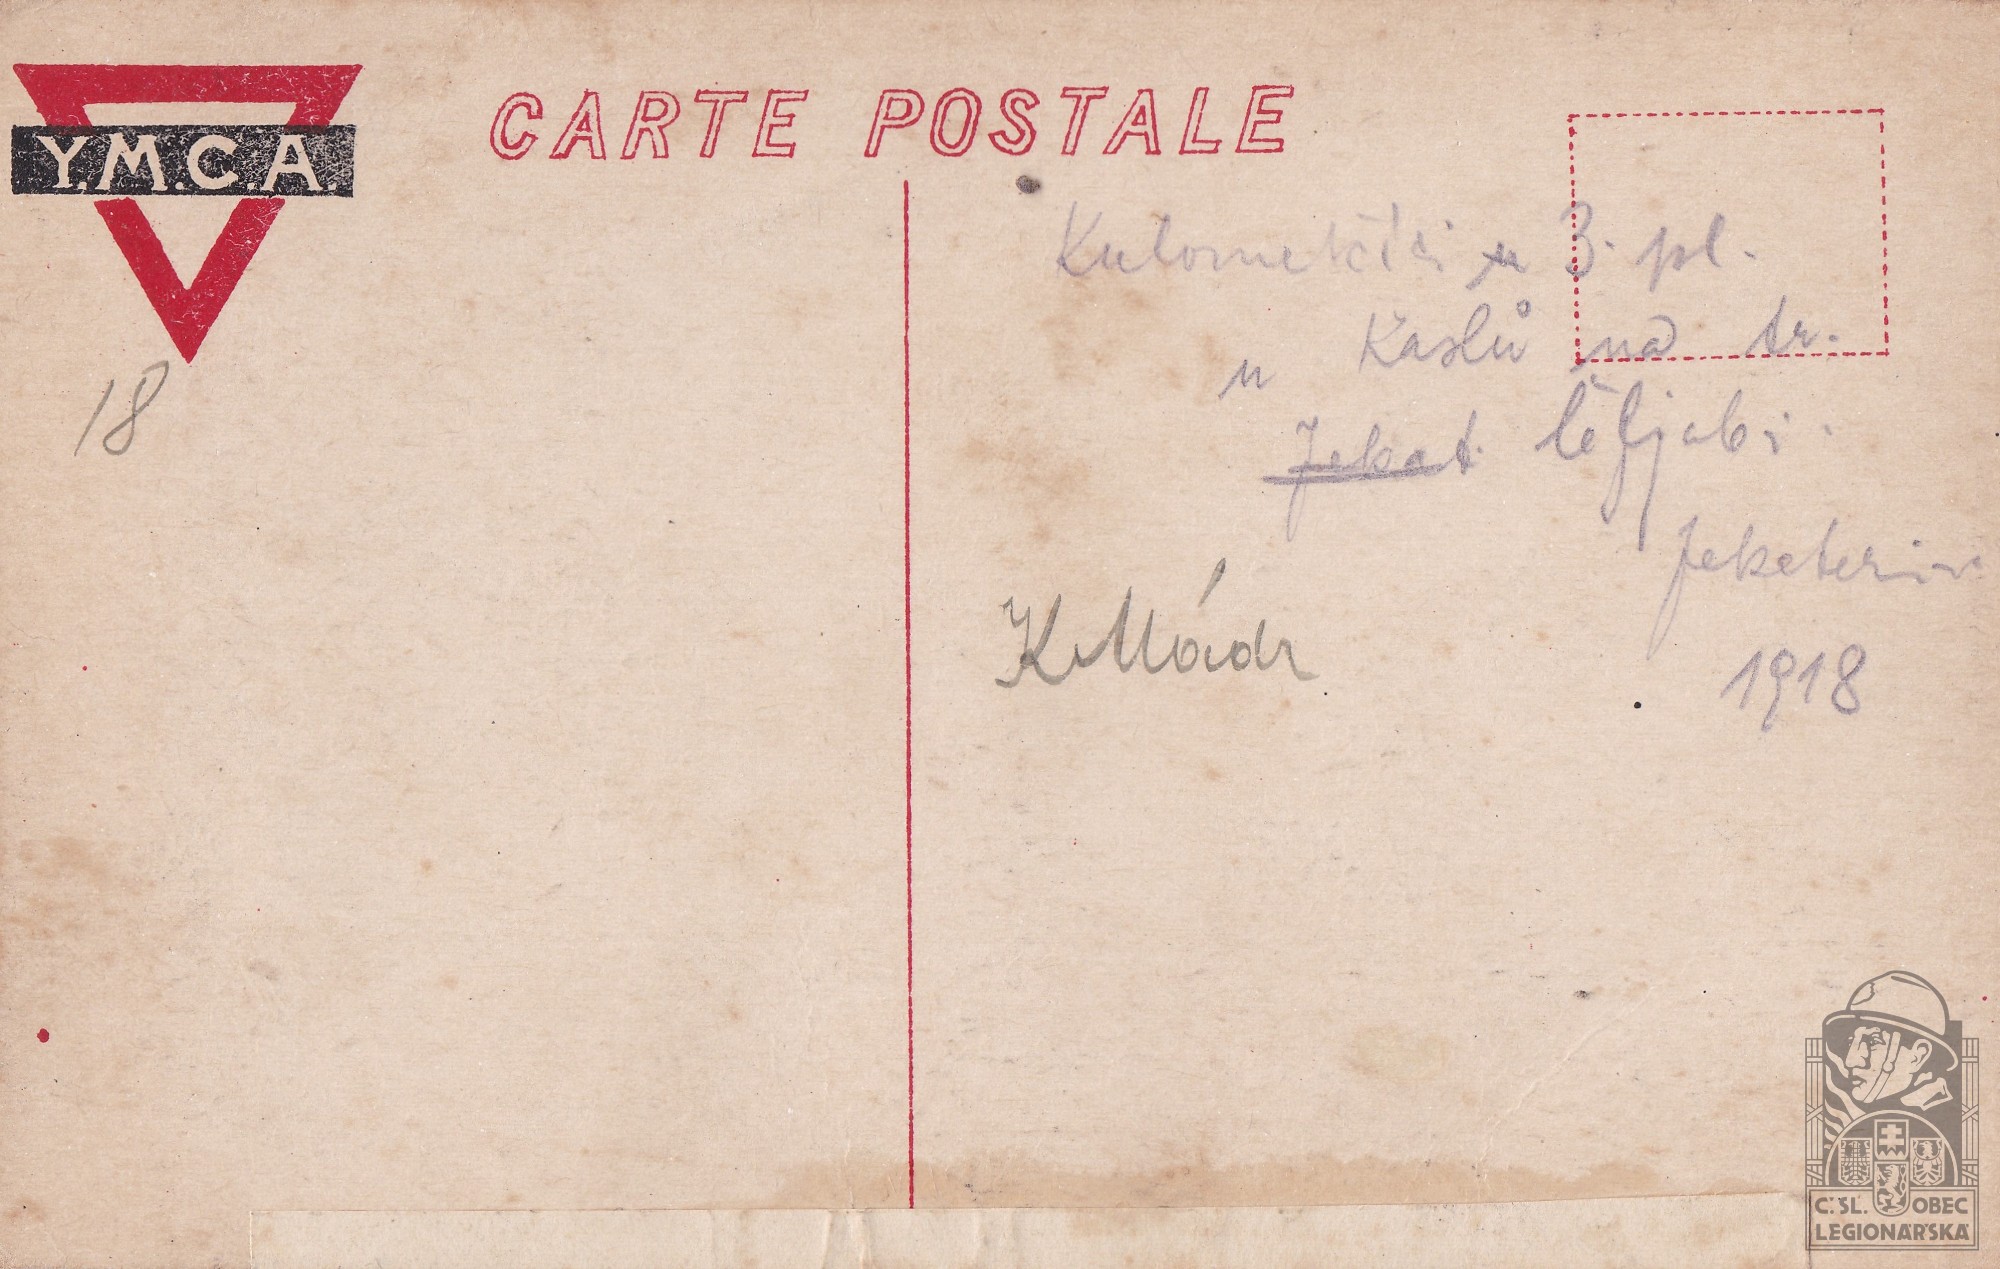 Y.M.C.A.
CARTE POSTALE
Kulometčíci u 3. pl.
u Kaslů na tr.
Jekat. Čeljabi.
Jekaterin.
1918
18
K Mádr
Č.SL. OBEC
LEGIONÁŘSKÁ